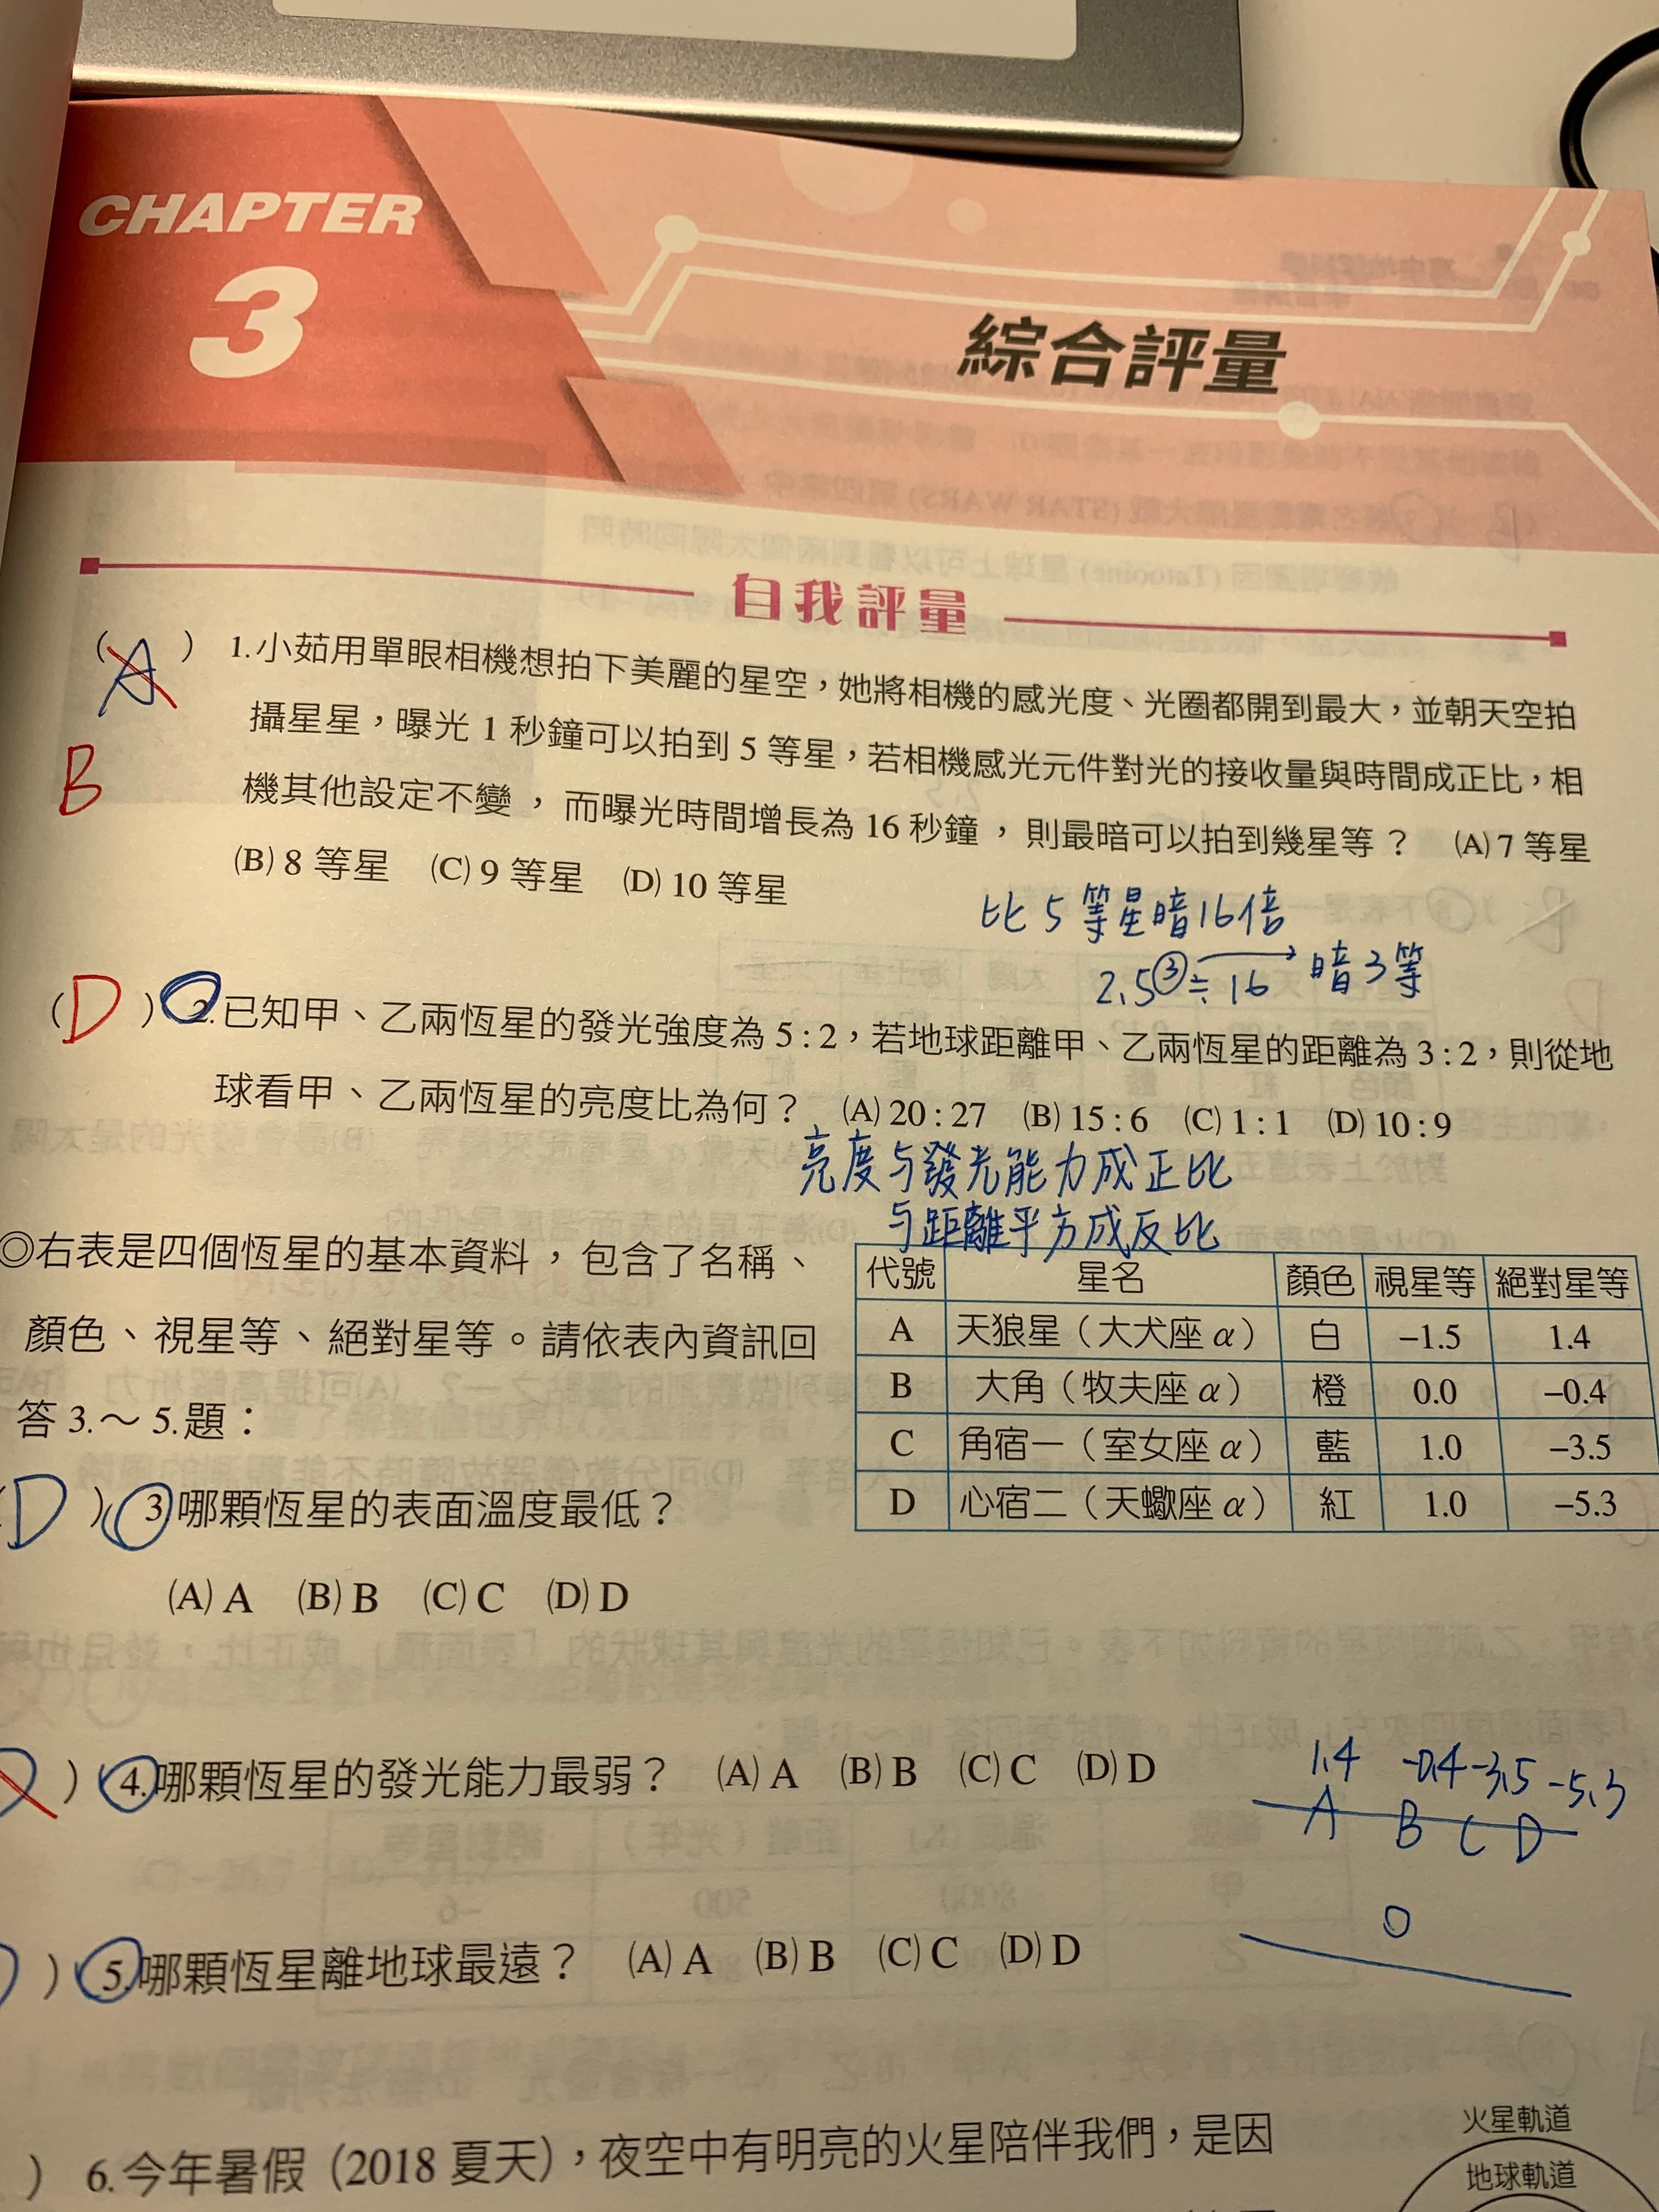 CHAPTER
3
綜合評量
自我評量
(A) 1.小茹用單眼相機想拍下美麗的星空，她將相機的感光度、光圈都開到最大，並朝天空拍
攝星星，曝光 1 秒鐘可以拍到 5 等星，若相機感光元件對光的接收量與時間成正比，相
B
機其他設定不變，而曝光時間增長為 16 秒鐘，則最暗可以拍到幾星等？ (A) 7 等星
(B) 8 等星 (C) 9 等星 (D) 10 等星
比 5 等星暗16倍
2.5③≒16 暗3等
(D) 2.已知甲、乙兩恆星的發光強度為 5:2，若地球距離甲、乙兩恆星的距離為 3:2，則從地
球看甲、乙兩恆星的亮度比為何？ (A) 20:27 (B) 15:6 (C) 1:1 (D) 10:9
亮度与發光能力成正比
与距離平方成反比
◎右表是四個恆星的基本資料，包含了名稱、
顏色、視星等、絕對星等。請依表內資訊回
答 3.～ 5.題：
代號 星名 顏色 視星等 絕對星等
A 天狼星（大犬座 α） 白 –1.5 1.4
B 大角（牧夫座 α） 橙 0.0 –0.4
C 角宿一（室女座 α） 藍 1.0 –3.5
D 心宿二（天蠍座 α） 紅 1.0 –5.3
(D) 3.哪顆恆星的表面溫度最低？
(A) A (B) B (C) C (D) D
) 4.哪顆恆星的發光能力最弱？ (A) A (B) B (C) C (D) D
1.4 -0.4 -3.5 -5.3
A B C D
0
) 5.哪顆恆星離地球最遠？ (A) A (B) B (C) C (D) D
) 6.今年暑假（2018 夏天），夜空中有明亮的火星陪伴我們，是因
火星軌道
地球軌道